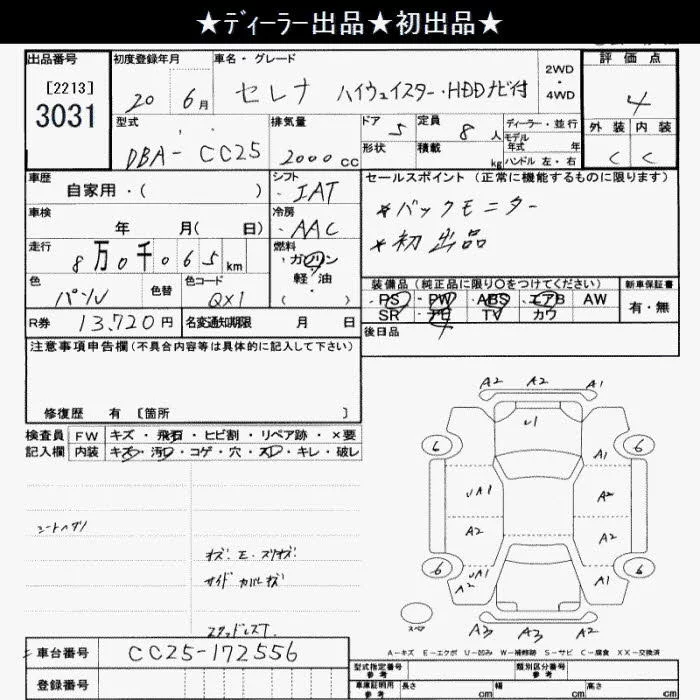 ★ディーラー出品★初出品★
出品番号
[2213]
3031
初度登録年月
20 6月
車名・グレード
セレナ ハイウェイスター・HDDナビ付
2WD
・
4WD
評価点
4
型式
DBA- CC25
排気量
2000cc
ドア 5
定員 8人
形状
積載 kg
ディーラー・並行
モデル
年式 年
ハンドル 左・右
外装 内装
C C
車歴
自家用・( )
シフト
IAT
セールスポイント (正常に機能するものに限ります)
*バックモニター
*初出品
車検
年 月( 日)
冷房
AAC
走行
8万0千065km
燃料
ガソリン
軽・油
・( )
色
パシル
色替
色コード
QX1
装備品 (純正品に限り〇をつけてください)
PS PW ABS エアB AW
SR ナビ TV カワ
新車保証書
有・無
R券 13,720円
名変通知期限 月 日
後日品
注意事項申告欄(不具合内容等は具体的に記入して下さい)
修復歴 有 [箇所 ]
検査員 FW キズ・飛石・ヒビ割・リペア跡・×要
記入欄 内装 キズ・汚・コゲ・穴・スレ・キレ・破レ
シートヘタリ
サイド カバーキズ
スタッドレスT.
A2 A2 A1
U1
6 6
A1
UA1 A2
A2 A2
6 6
UA1
A2 A1
A3 A3 A2
スペア
A-キズ E-エクボ U-凹み W-補修跡 S-サビ C-腐食 XX-交換済
車台番号 CC25-172556
登録番号
型式指定番号
参考
類別区分番号
車庫証明用
参考
長さ cm
幅 cm
高さ cm